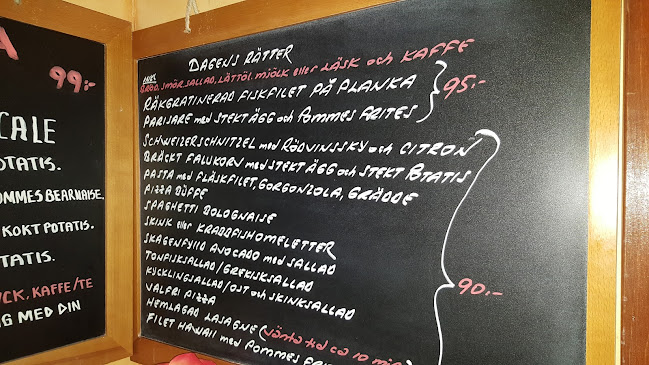 99:-
CALE
OTATIS.
OMMES BEARNAISE.
KOKT POTATIS.
TATIS.
CK, KAFFE/TE
G MED DIN
DAGENS RÄTTER
INKL
BRÖD, SMÖR, SALLAD, LÄTTÖL, MJÖLK eller LÄSK och KAFFE
RÄKGRATINERAD FISKFILET PÅ PLANKA
PARISARE med STEKT ÄGG och POMMES FRITES
95.-
SCHWEIZERSCHNITZEL med RÖDVINSSKY och CITRON
BRÄCKT FALUKORV med STEKT ÄGG och STEKT POTATIS
PASTA med FLÄSKFILET, GORGONZOLA, GRÄDDE
PIZZA BUFFE
SPAGHETTI BOLOGNAISE
SKINK eller KRABBFISHOMELETTER
SKAGENFYLLD AVOCADO med SALLAD
TONFISKSALLAD/GREKISKSALLAD
KYCKLINGSALLAD/OST och SKINKSALLAD
VALFRI PIZZA
HEMLAGAD LASAGNE (vänta tid ca 10 min)
FILET HAWAII med POMMES FRIT
90.-